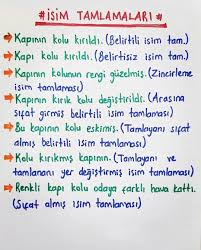 #İSİM TAMLAMALARI#
→ Kapının kolu kırıldı. (Belirtili isim tam.)
→ Kapı kolu kırıldı. (Belirtisiz isim tam.)
→ Kapının kolunun rengi güzelmiş. (Zincirleme
isim tamlaması)
→ Kapının kırık kolu değiştirildi. (Arasına
sıfat girmiş belirtili isim tamlaması)
→ Bu kapının kolu eskimiş. (Tamlayanı sıfat
almış belirtili isim tamlaması)
→ Kolu kırıkmış kapının. (Tamlayanı ve
tamlananı yer değiştirmiş isim tamlaması)
→ Renkli kapı kolu odaya farklı hava kattı.
(Sıfat almış isim tamlaması)